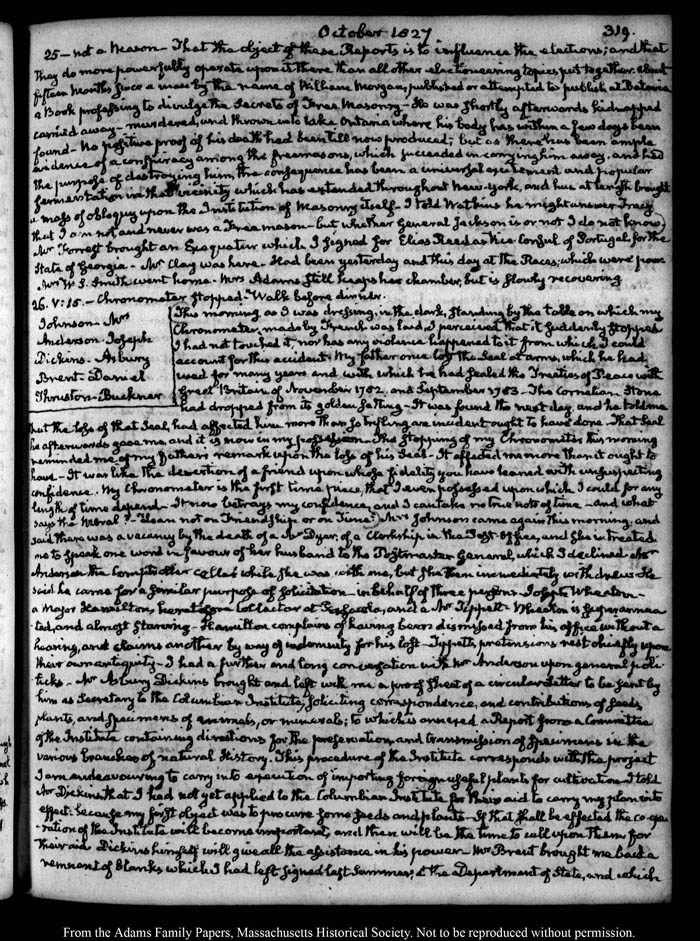 October 1827
319.
25 — not a Mason — That the object of these Reports is to influence the elections; and that
they do more powerfully operate upon it there than all other electioneering topics put together. About
fifteen Months since a man by the name of William Morgan, published or attempted to publish at Batavia
a Book professing to divulge the Secrets of Free Masonry — He was shortly afterwards kidnapped
carried away — murdered, and thrown into Lake Ontario where his body has within a few days been
found — No positive proof of his death had been till now produced; but as there has been ample
evidence of a conspiracy among the freemasons, which succeeded in carrying him away, and had
the purpose of destroying him, the consequence has been a universal excitement and popular
fermentation in that vicinity which has extended throughout New-York, and has at length brought
a mass of obloquy upon the Institution of Masonry itself — I told Watkins he might answer Tracy
that I am not and never was a Free mason — but whether General Jackson is or not I do not know.
Mr Forrest brought an Exequatur which I signed for Elias Reed as Vice Consul of Portugal, for the
State of Georgia — Mr Clay was here. Had been yesterday and this day at the Races; which were poor
Mrs W. S. Smith went home — Mrs Adams still keeps her chamber, but is slowly recovering
26. V: 15. — Chronometer stopped. Walk before dinner.
Johnson — Mrs
Anderson — Joseph
Dickins — Asbury
Brent — Daniel
Thruston — Buckner
This morning as I was dressing, in the dark, standing by the table on which my
Chronometer, made by French was laid, I perceived that it suddenly stopped
I had not touched it, nor has any violence happened to it from which I could
account for this accident. My father once lost the Seal at arms, which he had
used for many years and with which he had sealed the Treaties of Peace with
Great Britain of November 1782. and September 1783 — The Cornelian Stone
had dropped from its golden setting — It was found the next day, and he told me
that the loss of that Seal, had affected him more than so trifling an incident ought to have done. That Seal
he afterwards gave me, and it is now in my possession. The stopping of my Chronometer this morning
reminded me of my Father's remark upon the loss of his Seal — It affected me more than it ought to
have — It was like the desertion of a friend upon whose fidelity you have leaned with unsuspecting
confidence. My Chronometer is the first time piece, that I ever possessed upon which I could for any
length of time depend — It now betrays my confidence, and I can take no true note of time — and what
says the Moral? "Lean not on Friendship or on Time." Mrs Johnson came again this morning, and
said there was a vacancy by the death of a Mr Dyer, of a Clerkship in the Post-Office, and she intreated
me to speak one word in favour of her husband to the Postmaster General, which I declined. Mr
Anderson the Comptroller called while she was with me, but she then immediately withdrew. He
said he came for a familiar purpose of solicitation — in behalf of three persons. Joseph Wheaton —
a Major Hamilton, heretofore Collector at Pensacola, and a Mr Tippett — Wheaton is superannua
ted, and almost starving — Hamilton complains of having been dismissed from his office without a
hearing, and claims another by way of indemnity for his lost — Tippett's pretensions rest chiefly upon
their own antiquity — I had a further and long conversation with Mr Anderson upon general poli
ticks — Mr Asbury Dickins brought and left with me a proof sheet of a circular Letter to be sent by
him as Secretary to the Columbian Institute, soliciting correspondence, and contributions of seeds,
plants, and specimens of animals, or minerals; to which is annexed a Report from a Committee
of the Institute containing directions for the preservation and transmission of specimens in the
various branches of natural History. This procedure of the Institute corresponds with the project
I am endeavouring to carry into execution of importing foreign useful plants for cultivation. I told
Mr Dickins that I had not yet applied to the Columbian Institute for their aid to carry my plan into
effect: because my first object was to procure some seeds and plants — If that shall be effected the co-ope
ration of the Institute will become important, and then will be the time to call upon them for
their aid. Dickins himself will give all the assistance in his power. Mr Brent brought me back a
remnant of blanks which I had left signed last Summer, at the Department of State, and which
From the Adams Family Papers, Massachusetts Historical Society. Not to be reproduced without permission.